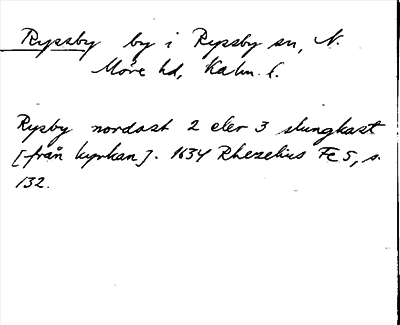 Ryssby by i Ryssby sn, N.
Möre hd, Kalm. l.
Rysby nordast 2 eler 3 slungkast
[från kyrkan]. 1634 Rhezelius Fc 5, s.
132.